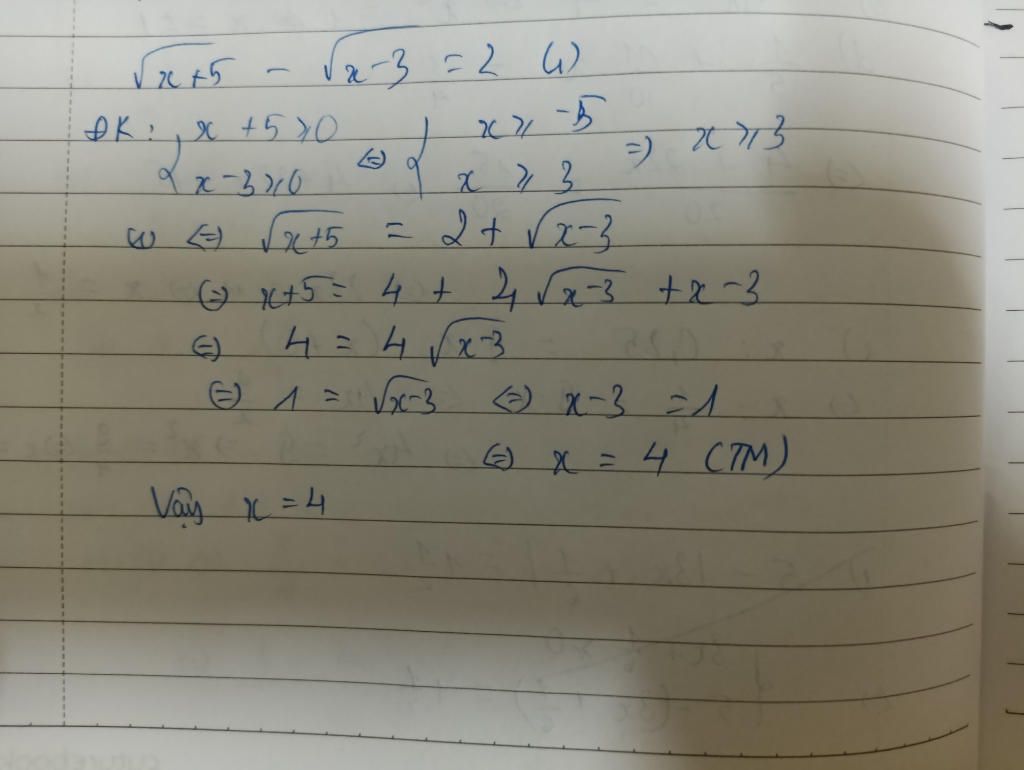 √(x+5) - √(x-3) = 2 (1)
ĐK: { x + 5 ⩾ 0 ⇔ { x ⩾ -5 ⇒ x ⩾ 3
x - 3 ⩾ 0 x ⩾ 3
(1) ⇔ √(x+5) = 2 + √(x-3)
⇔ x+5 = 4 + 4√(x-3) + x - 3
⇔ 4 = 4√(x-3)
⇔ 1 = √(x-3) ⇔ x-3 = 1
⇔ x = 4 (TM)
Vậy x = 4